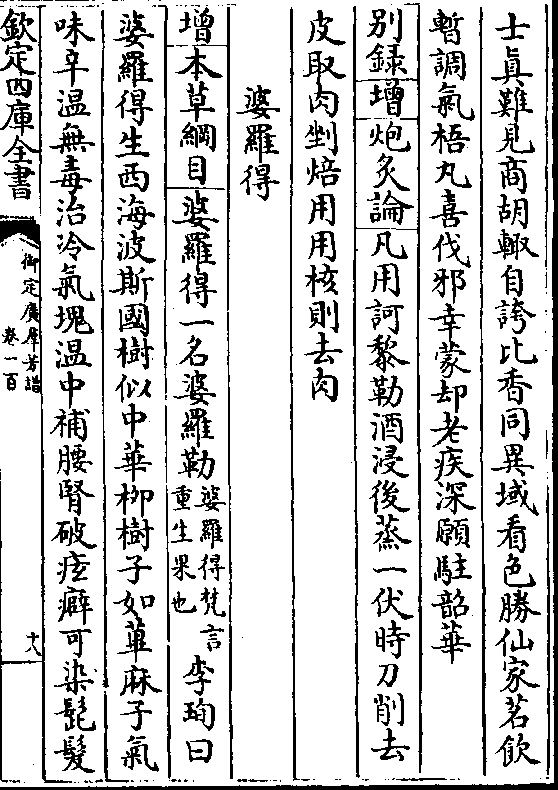 士真難見商胡輙自誇比香同異域看色勝仙家茗飲
暫調氣梧丸喜伐邪幸蒙却老疾深願駐韶華
別録增炮炙論凡用訶黎勒酒浸後蒸一伏時刀削去
皮取肉剉焙用用核則去肉
婆羅得
增本草綱目婆羅得一名婆羅勒婆羅得梵言重生果也李珣曰
婆羅得生西海波斯國樹似中華柳樹子如萆麻子氣
味辛溫無毒治冷氣塊溫中補腰腎破痃癖可染髭髮
欽定四庫全書
御定廣羣芳譜
卷一百
十八